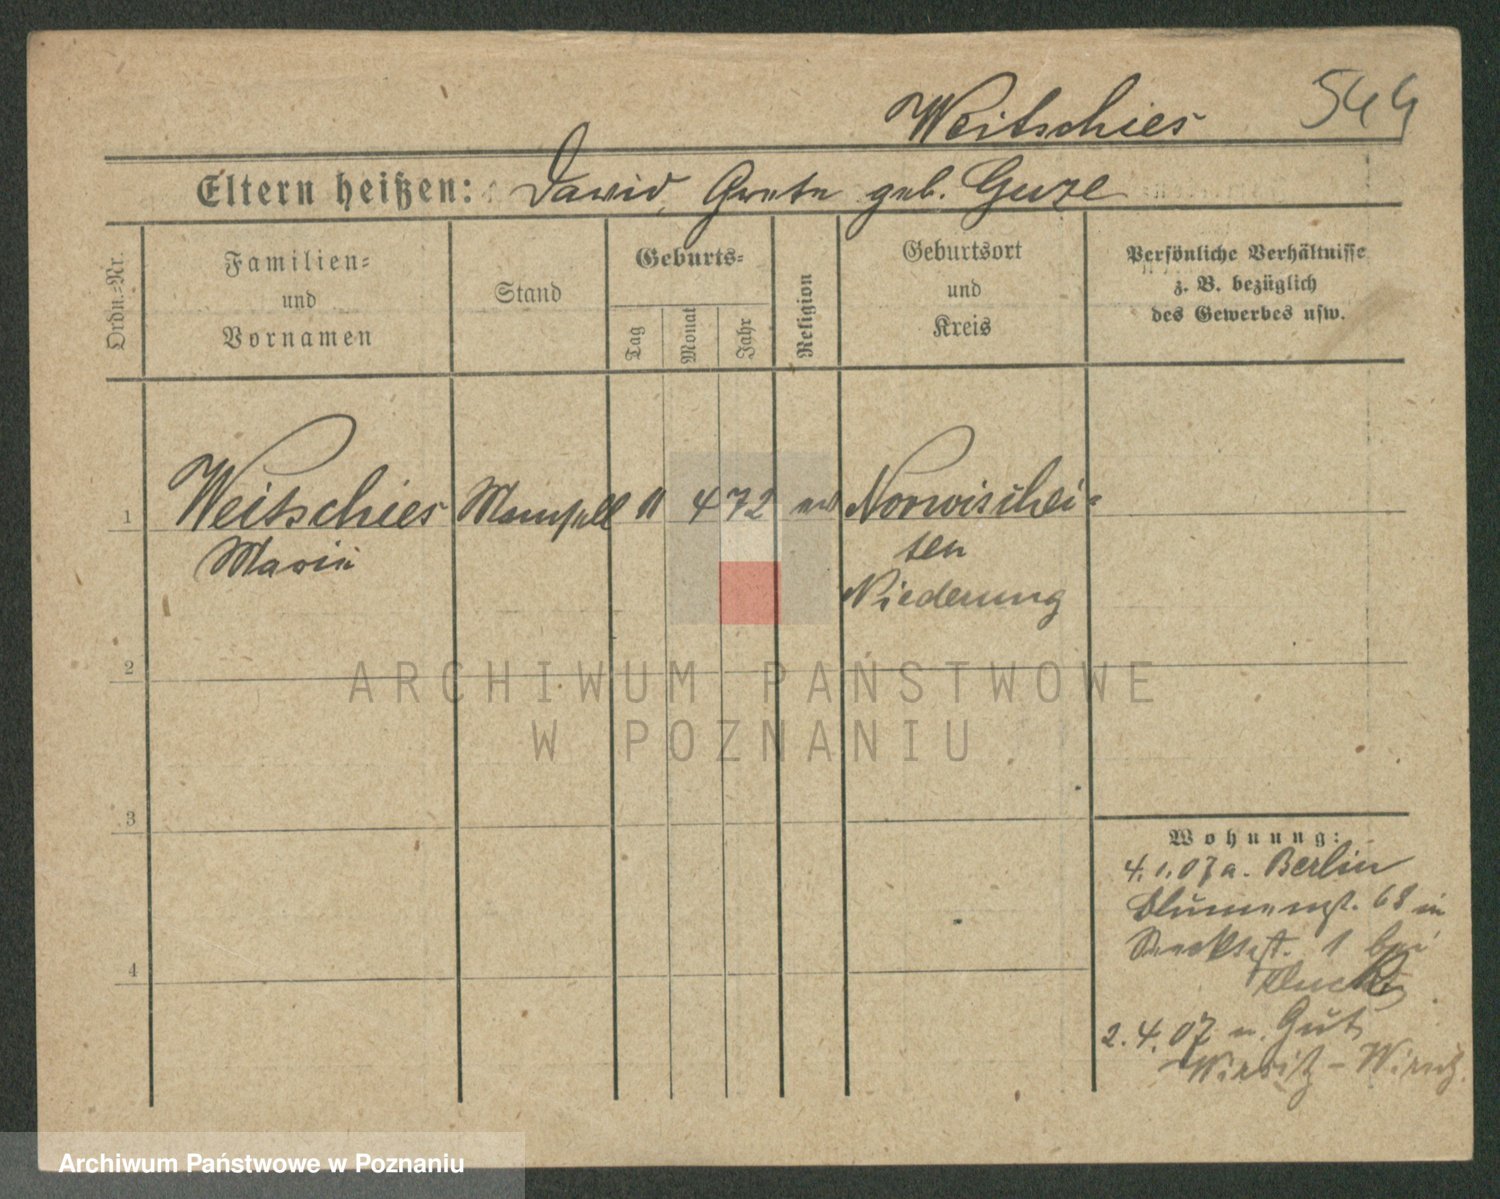 Weitschies
544
Eltern heißen: David, Grete geb. Guze
Ordn.-Nr.
Familien-
und
Vornamen
Stand
Geburts-
Tag
Monat
Jahr
Religion
Geburtsort
und
Kreis
Persönliche Verhältnisse
z. B. bezüglich
des Gewerbes usw.
1 Weitschies Mamsell 11 4 72 Norwischei-
Marie ten
Niederung
2
ARCHIWUM PAŃSTWOWE
W POZNANIU
3
4
Wohnung:
4.1.07 a. Berlin
Blumenstr. 68 in
1 bei
2.4.07 n. Gut
Wirsitz - Wirsitz
Archiwum Państwowe w Poznaniu